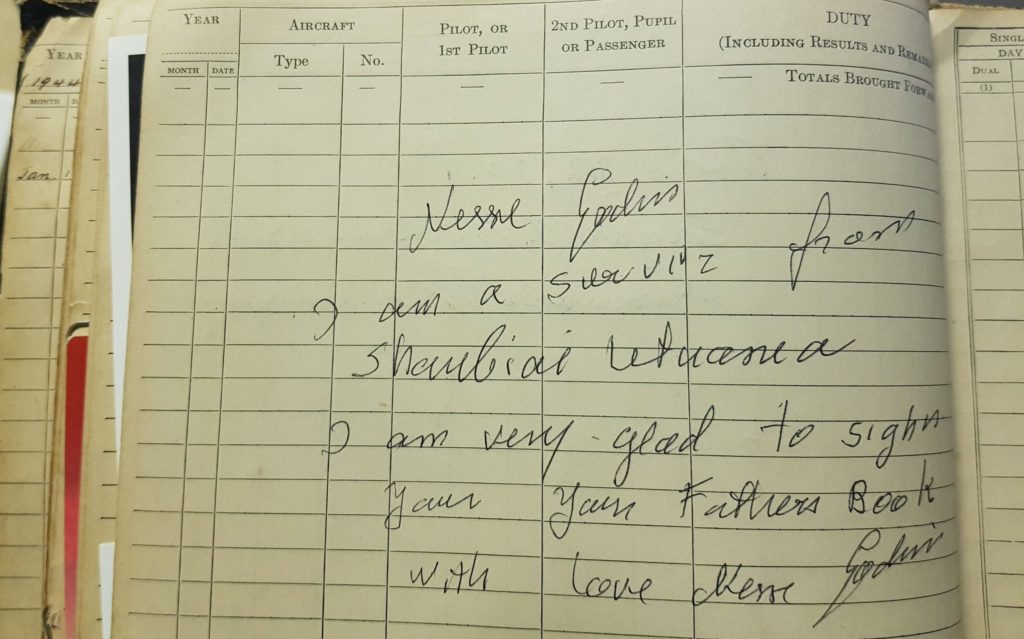 YEAR AIRCRAFT PILOT, OR 1ST PILOT 2ND PILOT, PUPIL OR PASSENGER DUTY (INCLUDING RESULTS AND REMAR
MONTH DATE Type No.
TOTALS BROUGHT FORWA
YEAR
1944
MONTH D
Jan.
SINGL
DAY
DUAL
(1)
Nesse Godin
I am a surviv from
Shauliai Letuanea
I am very glad to sighn
Your Your Fathers Book
with Love Nesse Godin